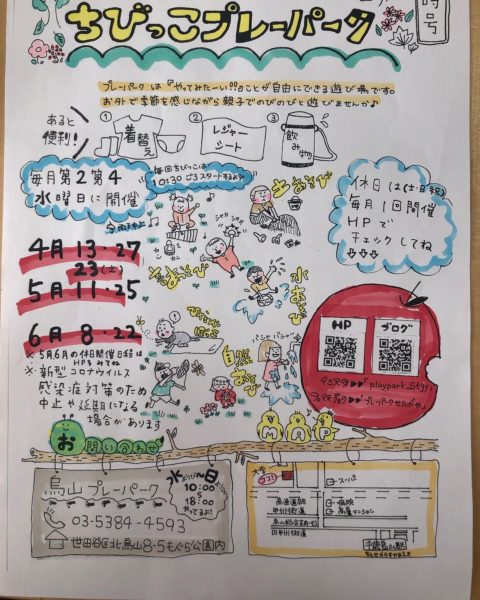 時号
ちびっこプレーパーク
プレーパークは『やってみたーい!!』のことが自由にできる遊び場です。
お外で季節を感じながら親子でのびのびと遊びませんか♪
あると便利!
① 着替え
② レジャーシート
③ 飲み物
毎月第2第4
水曜日に開催
毎回ちびっこは
10:30ごろスタートするよ♪
休日は(土・日・祝)
毎月1回開催
HPで
チェックしてね
4月 13・27
23(土)
5月 11・25
6月 8・22
※5月6月の休日開催日程は
HPをみてね
※新型コロナウイルス
感染症対策のため
中止や延期になる
場合があります
土あそび
水あそび
自然あそび
HP
ブログ
お問い合わせ
MAP
烏山プレーパーク
水ようび〜日ようび
10:00
18:00
やってるよ!!
03-5384-4593
世田谷区北烏山8-5もぐら公園内
ココ!
スーパー
病院
高速道路
甲州街道
旧甲州街道
千歳烏山駅